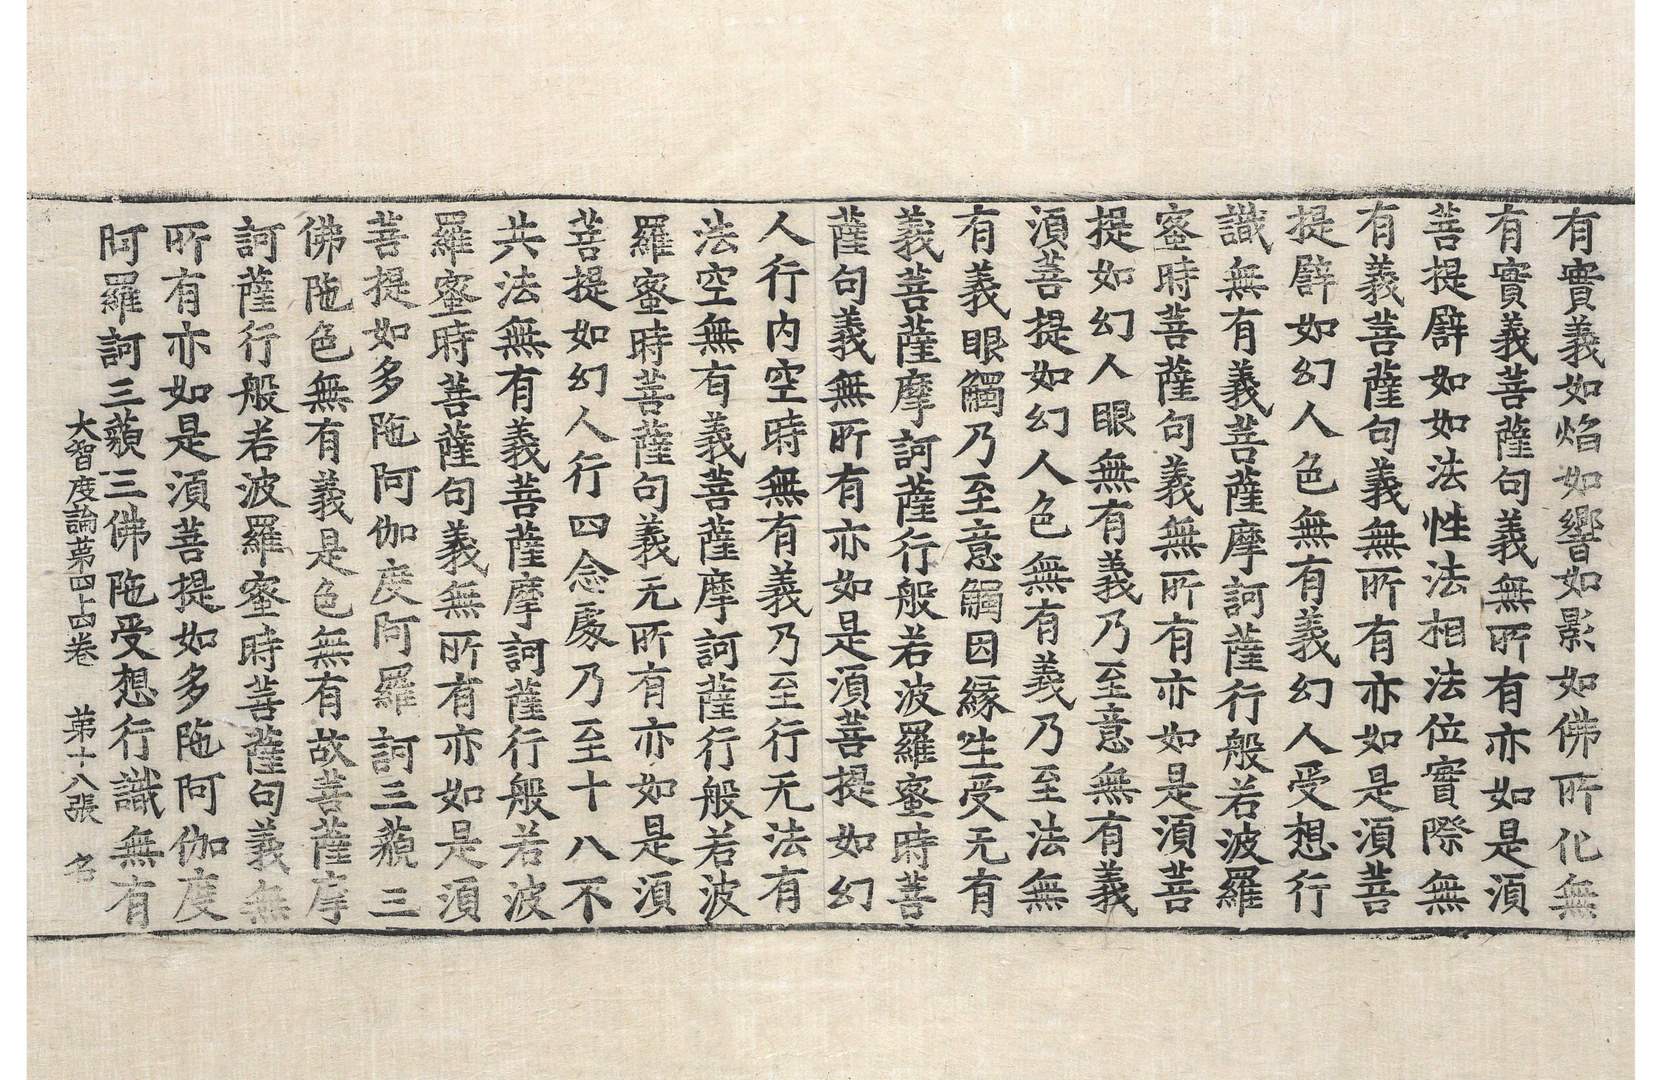 有實義如焰如響如影如佛所化無
有實義菩薩句義無所有亦如是須
菩提譬如如法性法相法位實際無
有義菩薩句義無所有亦如是須菩
提譬如幻人色無有義幻人受想行
識無有義菩薩摩訶薩行般若波羅
蜜時菩薩句義無所有亦如是須菩
提如幻人眼無有義乃至意無有義
須菩提如幻人色無有義乃至法無
有義眼觸乃至意觸因緣生受无有
義菩薩摩訶薩行般若波羅蜜時菩
薩句義無所有亦如是須菩提如幻
人行内空時無有義乃至行无法有
法空無有義菩薩摩訶薩行般若波
羅蜜時菩薩句義无所有亦如是須
菩提如幻人行四念處乃至十八不
共法無有義菩薩摩訶薩行般若波
羅蜜時菩薩句義無所有亦如是須
菩提如多陁阿伽度阿羅訶三藐三
佛陁色無有義是色無有故菩薩摩
訶薩行般若波羅蜜時菩薩句義無
所有亦如是須菩提如多陁阿伽度
阿羅訶三藐三佛陁受想行識無有
大智度論第四十四卷 第十八張 名